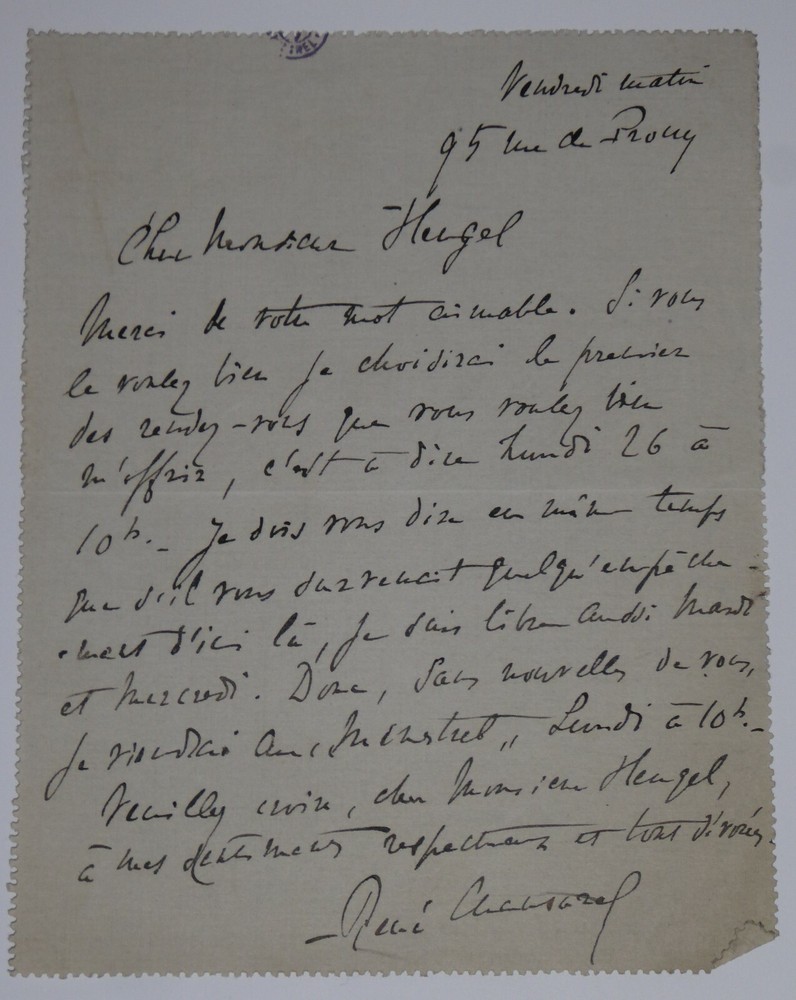 Vendredi matin
95 rue de Prony
Cher Monsieur Heugel
Merci de votre mot aimable. Si vous
le voulez bien je choisirai le premier
des rendez-vous que vous voulez bien
m'offrir, c'est à dire Lundi 26 à
10h. - Je dois vous dire en même temps
que s'il vous survenait quelqu'empêche-
-ment d'ici là, je suis libre aussi Mardi
et Mercredi. Donc, sans nouvelles de vous,
je viendrai au "Ménestrel" Lundi à 10h. -
Veuillez croire, cher Monsieur Heugel,
à mes sentiments respectueux et tout dévoués.
- René Chansarel